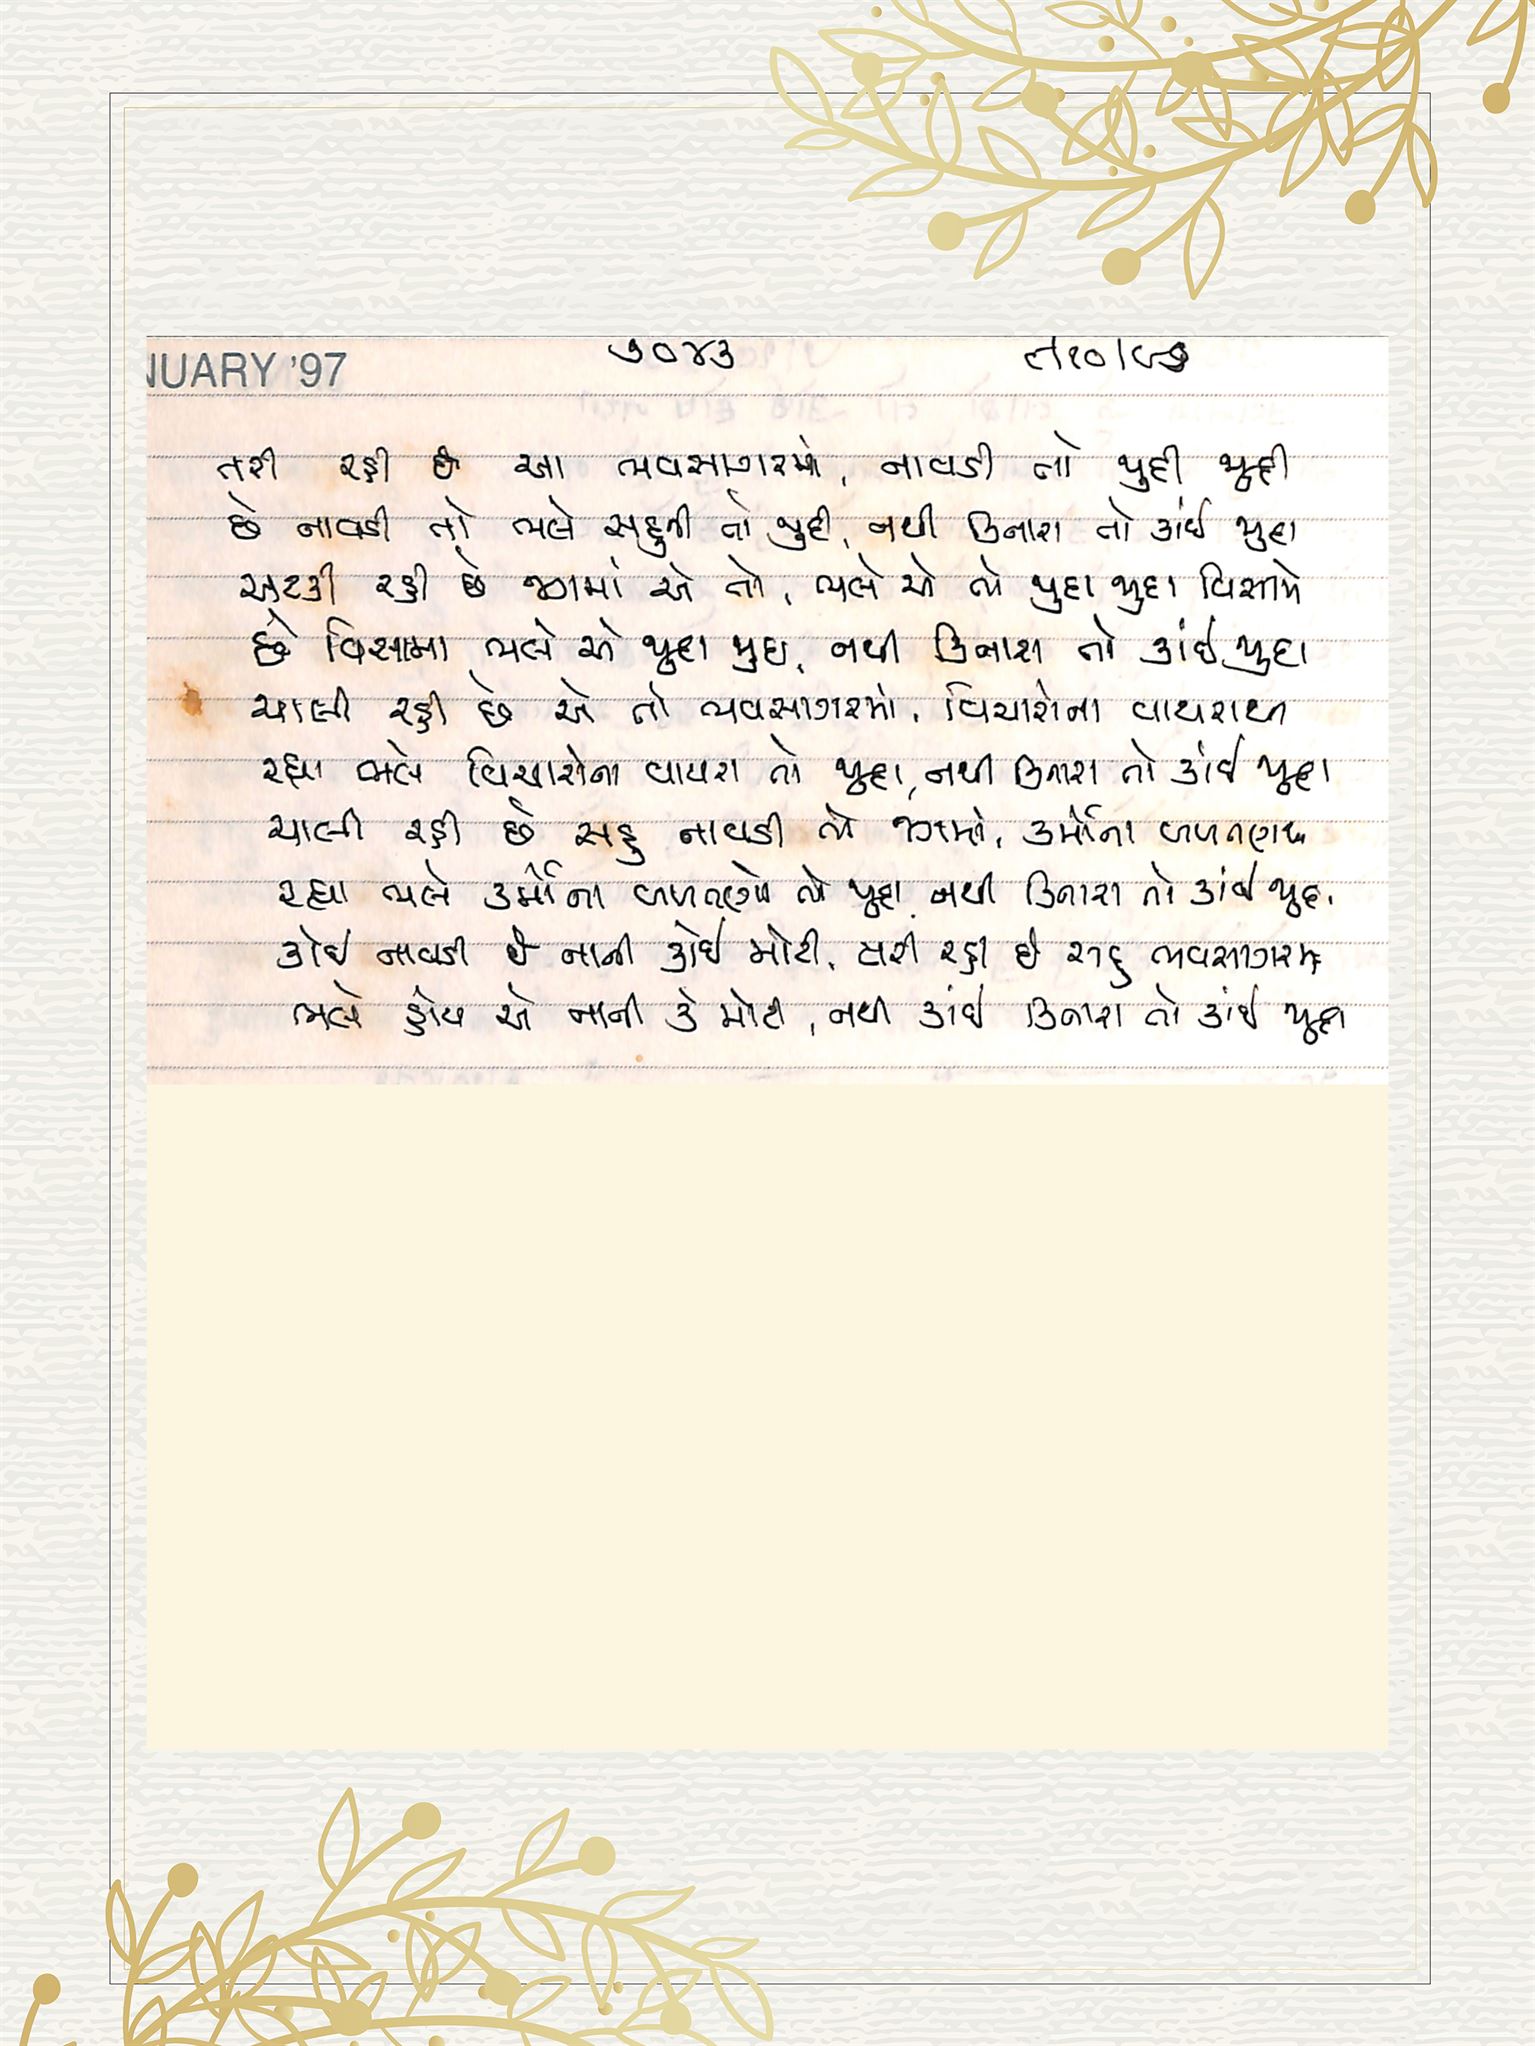 NUARY '97
૭૦૪૩
તરી રહી છે આ ભવસાગરમાં, નાવડી તો જુદી જુદી
છે નાવડી તો ભલે સહુની તો જુદી, નથી કિનારા તો કાંઈ જુદા
અટકી રહી છે જગમાં એ તો, ભલે એ તો જુદા જુદા વિસામે
છે વિસામા ભલે એ જુદા જુદા, નથી કિનારા તો કાંઈ જુદા
ચાલી રહી છે એ તો ભવસાગરમાં, વિચારોના વાયરાથી
રહ્યા ભલે વિચારોના વાયરા તો જુદા, નથી કિનારા તો કાંઈ જુદા
ચાલી રહી છે સહુ નાવડી તો જગમાં, કર્મોના
રહ્યા ભલે કર્મોના તો જુદા નથી કિનારા તો કાંઈ જુદા
કોઈ નાવડી છે નાની કોઈ મોટી, તરી રહી છે સહુ ભવસાગરમાં
ભલે હોય એ નાની કે મોટી, નથી કાંઈ કિનારા તો કાંઈ જુદા